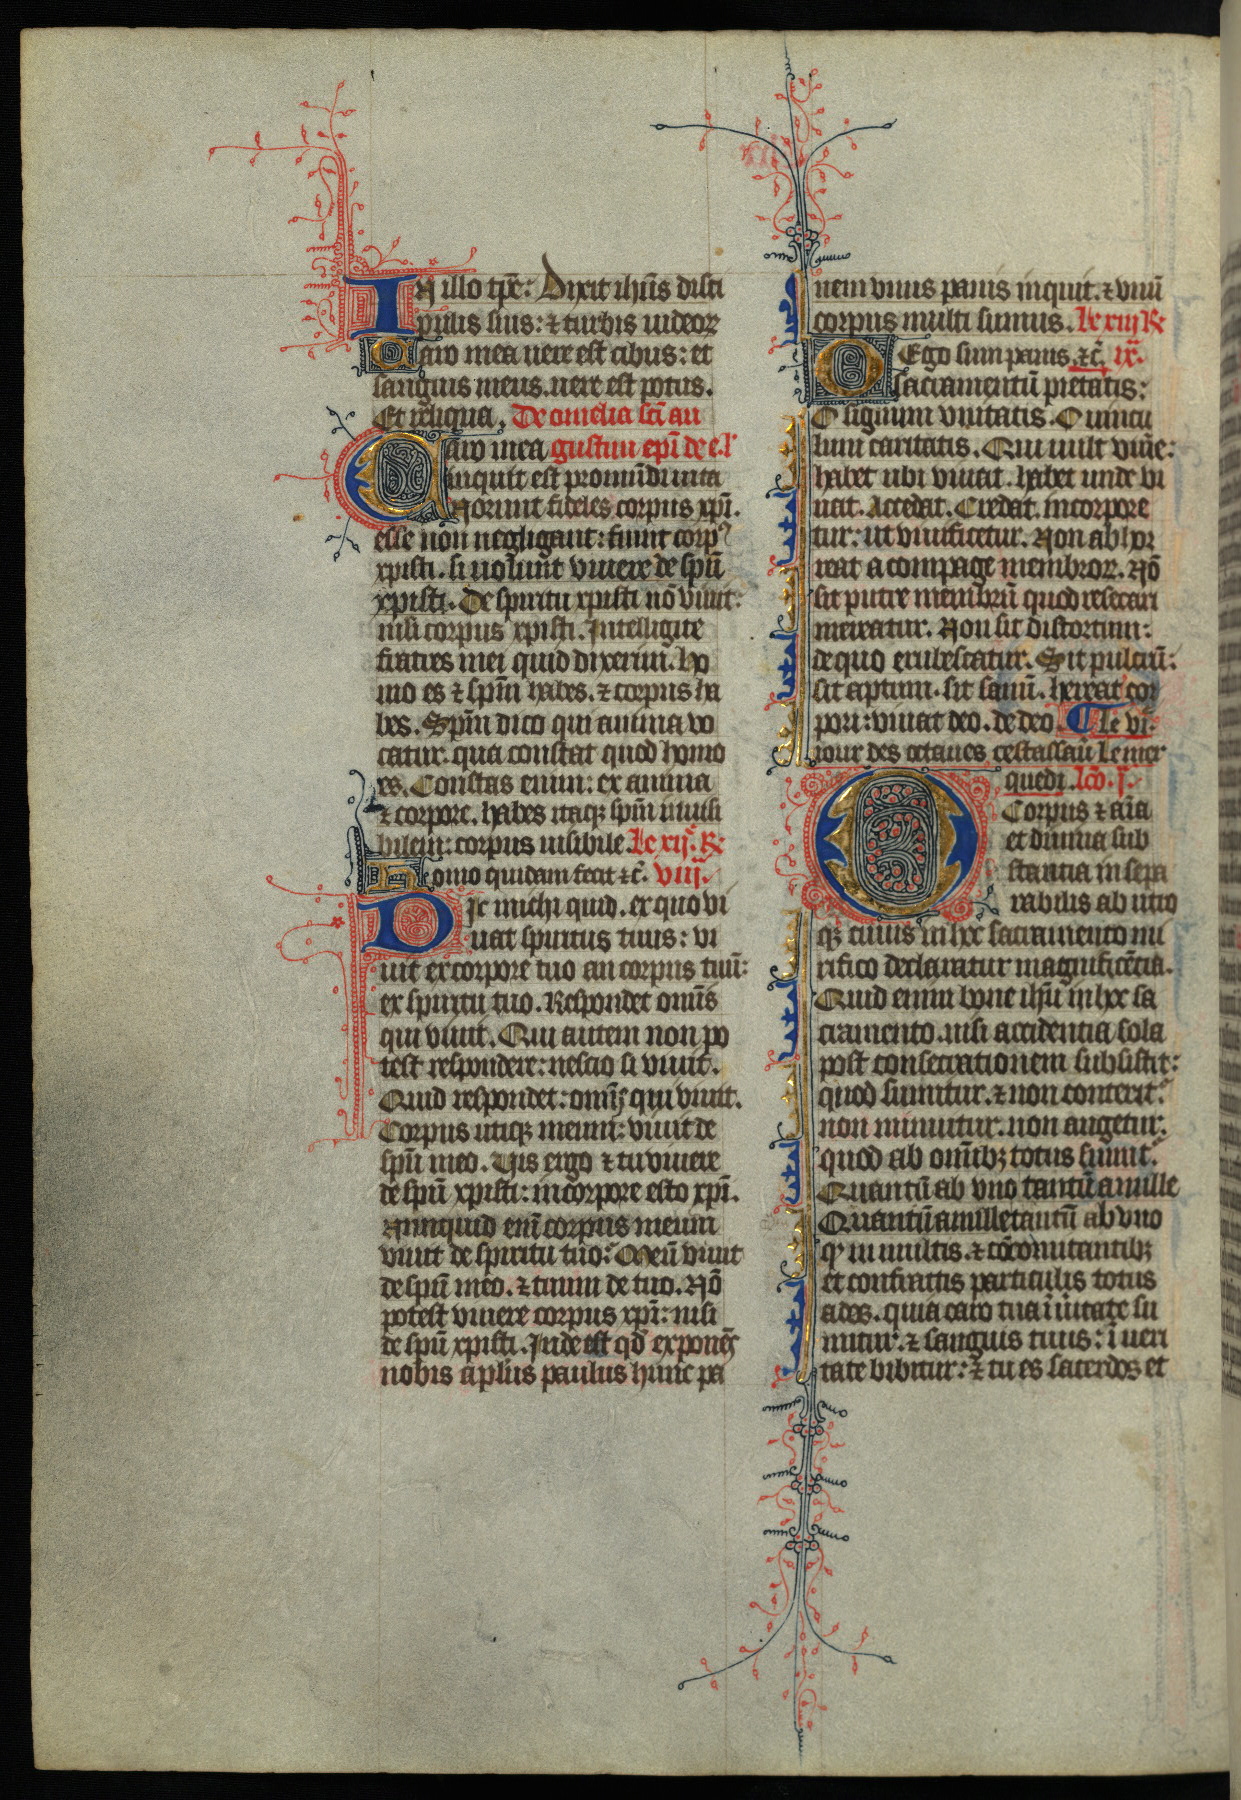 IN illo tp̄e: Dixit ihūs disci
pulis suis: ⁊ turbis iudeoꝝ
Caro mea uere est cibus: et
sanguis meus. uere est potus.
Et reliqua. De omelia sc̄i au
Caro mea gustini ep̄i de e.l'
inquit est pro mūdi uita
Norunt fideles corpus xp̄i.
esse non negligant: fiunt corpꝰ
xpisti. si uolunt viuere de sp̄u
xpisti. De spiritu xpisti nō viuit:
nisi corpus xpisti. Intelligite
fratres mei quid dixerim. Ho
mo es ⁊ sp̄m habes. ⁊ corpus ha
bes. Sp̄m dico qui anima vo
catur. qua constat quod homo
es. Constas enim: ex anima
⁊ corpore. habes itaqꝫ sp̄m inuisi
bilem: corpus uisibile. Le xij. ℟
Homo quidam fecit ⁊c̄. viij.
Dic michi quid. ex quo vi
uat spiritus tuus: vi
uit ex corpore tuo an corpus tuū:
ex spiritu tuo. Respondet om̄is
qui viuit. Qui autem non po
test respondere: nescio si viuit.
Quid respondet: om̄is qui viuit.
Corpus utiqꝫ meum: viuit de
sp̄u meo. Uis ergo ⁊ tu viuere
de sp̄u xpisti: in corpore esto xp̄i.
Nunquid enī corpus meum
viuit de spiritu tuo: Meū viuit
de sp̄u meo. ⁊ tuum de tuo. Nō
potest viuere corpus xp̄i: nisi
de sp̄u xpisti. Inde est qd̄ exponēs
nobis aplūs paulus hunc pa
nem vnus panis inquit. ⁊ vnū
corpus multi sumus. Le xiij ℟
Ego sum panis. ⁊c̄. ix.
O sacramentū pietatis:
O signum vnitatis. O uincu
lum caritatis. Qui uult viūe:
habet ubi viuat. habet unde vi
uat. Accedat. Credat. incorpore
tur: ut viuificetur. Non abhor
reat a compage membroꝝ. Nō
sit putre membrū quod resecari
mereatur. Non sit distortum:
de quo erubescatur. Sit pulcrū:
sit aptum. sit sanū. hereat cor
pori: viuat deo. de deo. ¶ Le vi.
iour des octaues cestassau. le mer
quedi. Lc̄o. j.
Corpus ⁊ aīa
et diuina sub
stantia insepa
rabilis ab utro
qꝫ cuius in hoc sacramento mi
rifico declaratur magnificētia.
Quid enim bone ihū in hoc sa
cramento. nisi accidentia sola
post consecrationem subsistit:
quod sumitur. ⁊ non conterit᷑.
non minuitur. non augetur.
quod ab om̄ibꝫ totus sumit᷑.
Quantū ab vno tantū a mille
Quantū a mille tantū ab vno
qꝛ in multis. ⁊ cōcomitantibꝫ
et confractis particulis totus
ades. quia caro tua ī ūitate su
mitur. ⁊ sanguis tuus: ī ueri
tate bibitur: ⁊ tu es sacerdos et